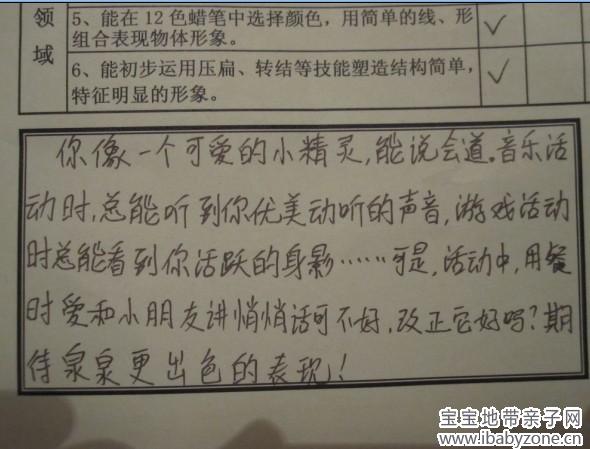 领域
5、能在12色蜡笔中选择颜色，用简单的线、形
组合表现物体形象。
6、能初步运用压扁、转结等技能塑造结构简单，
特征明显的形象。
你像一个可爱的小精灵,能说会道。音乐活
动时,总能听到你优美动听的声音,游戏活动
时总能看到你活跃的身影……可是,活动中,用餐
时爱和小朋友讲悄悄话可不好,改正它好吗?期
待泉泉更出色的表现!
宝宝地带亲子网
www.ibabyzone.cn